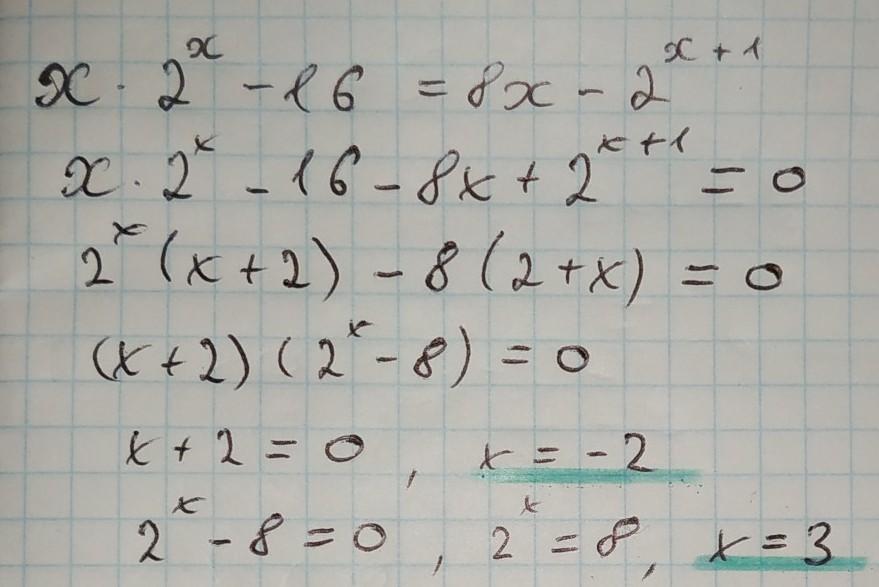 x · 2^x - 16 = 8x - 2^{x+1}
x · 2^x - 16 - 8x + 2^{x+1} = 0
2^x (x + 2) - 8 (2 + x) = 0
(x + 2) (2^x - 8) = 0
x + 2 = 0 , x = -2
2^x - 8 = 0 , 2^x = 8 , x = 3